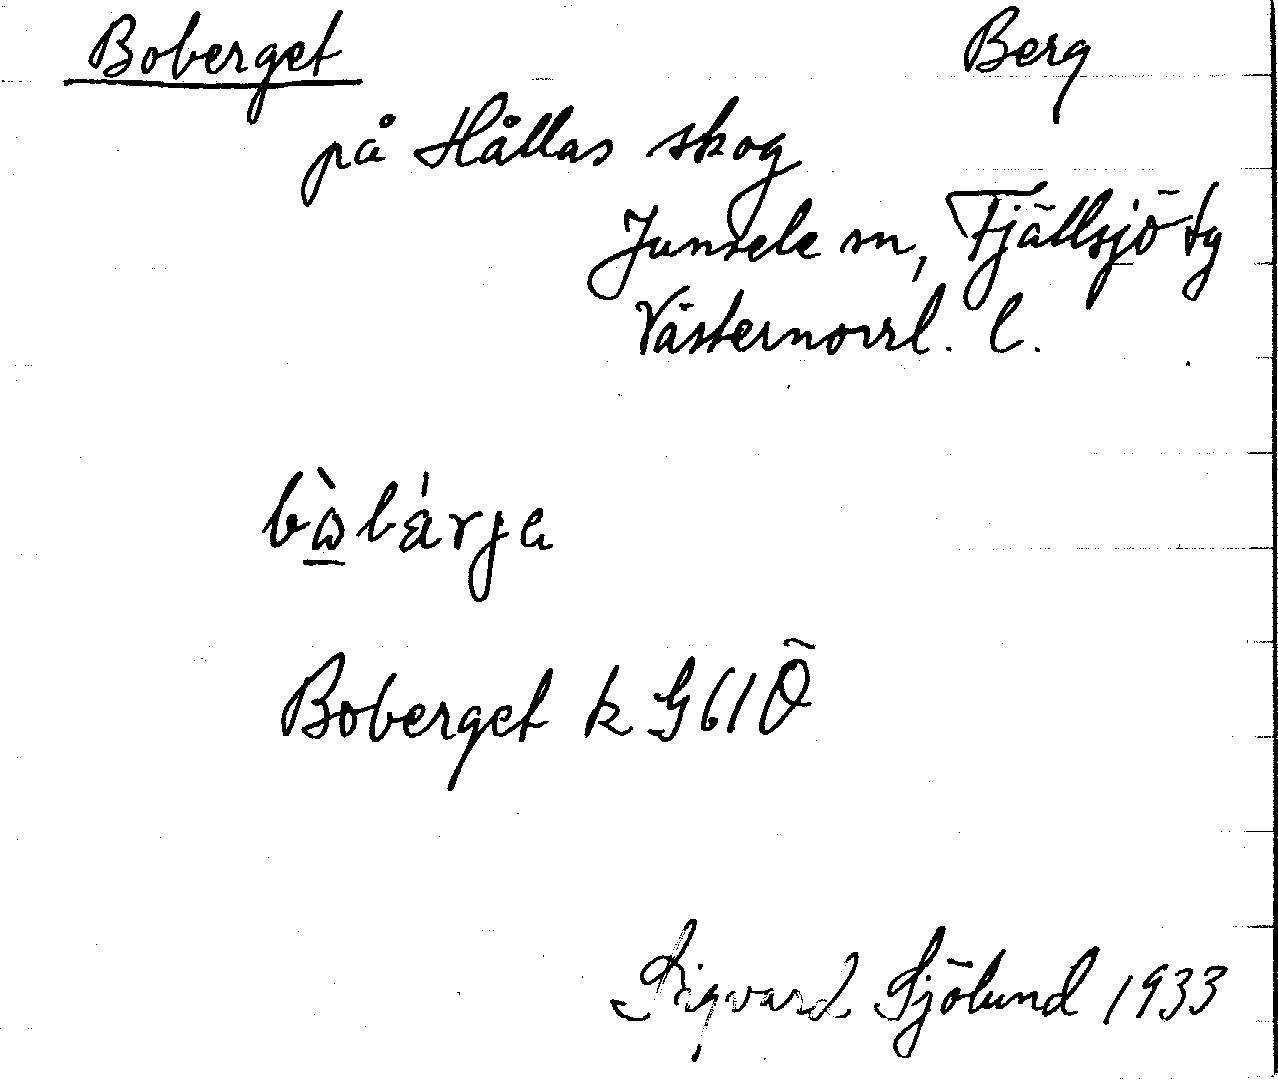 Boberget Berg
på Hållas skog
Junsele sn, Fjällsjö tg
Västernorrl. l.
bɷ̀bárja
Boberget k G61Ö
Sigvard Sjölund 1933